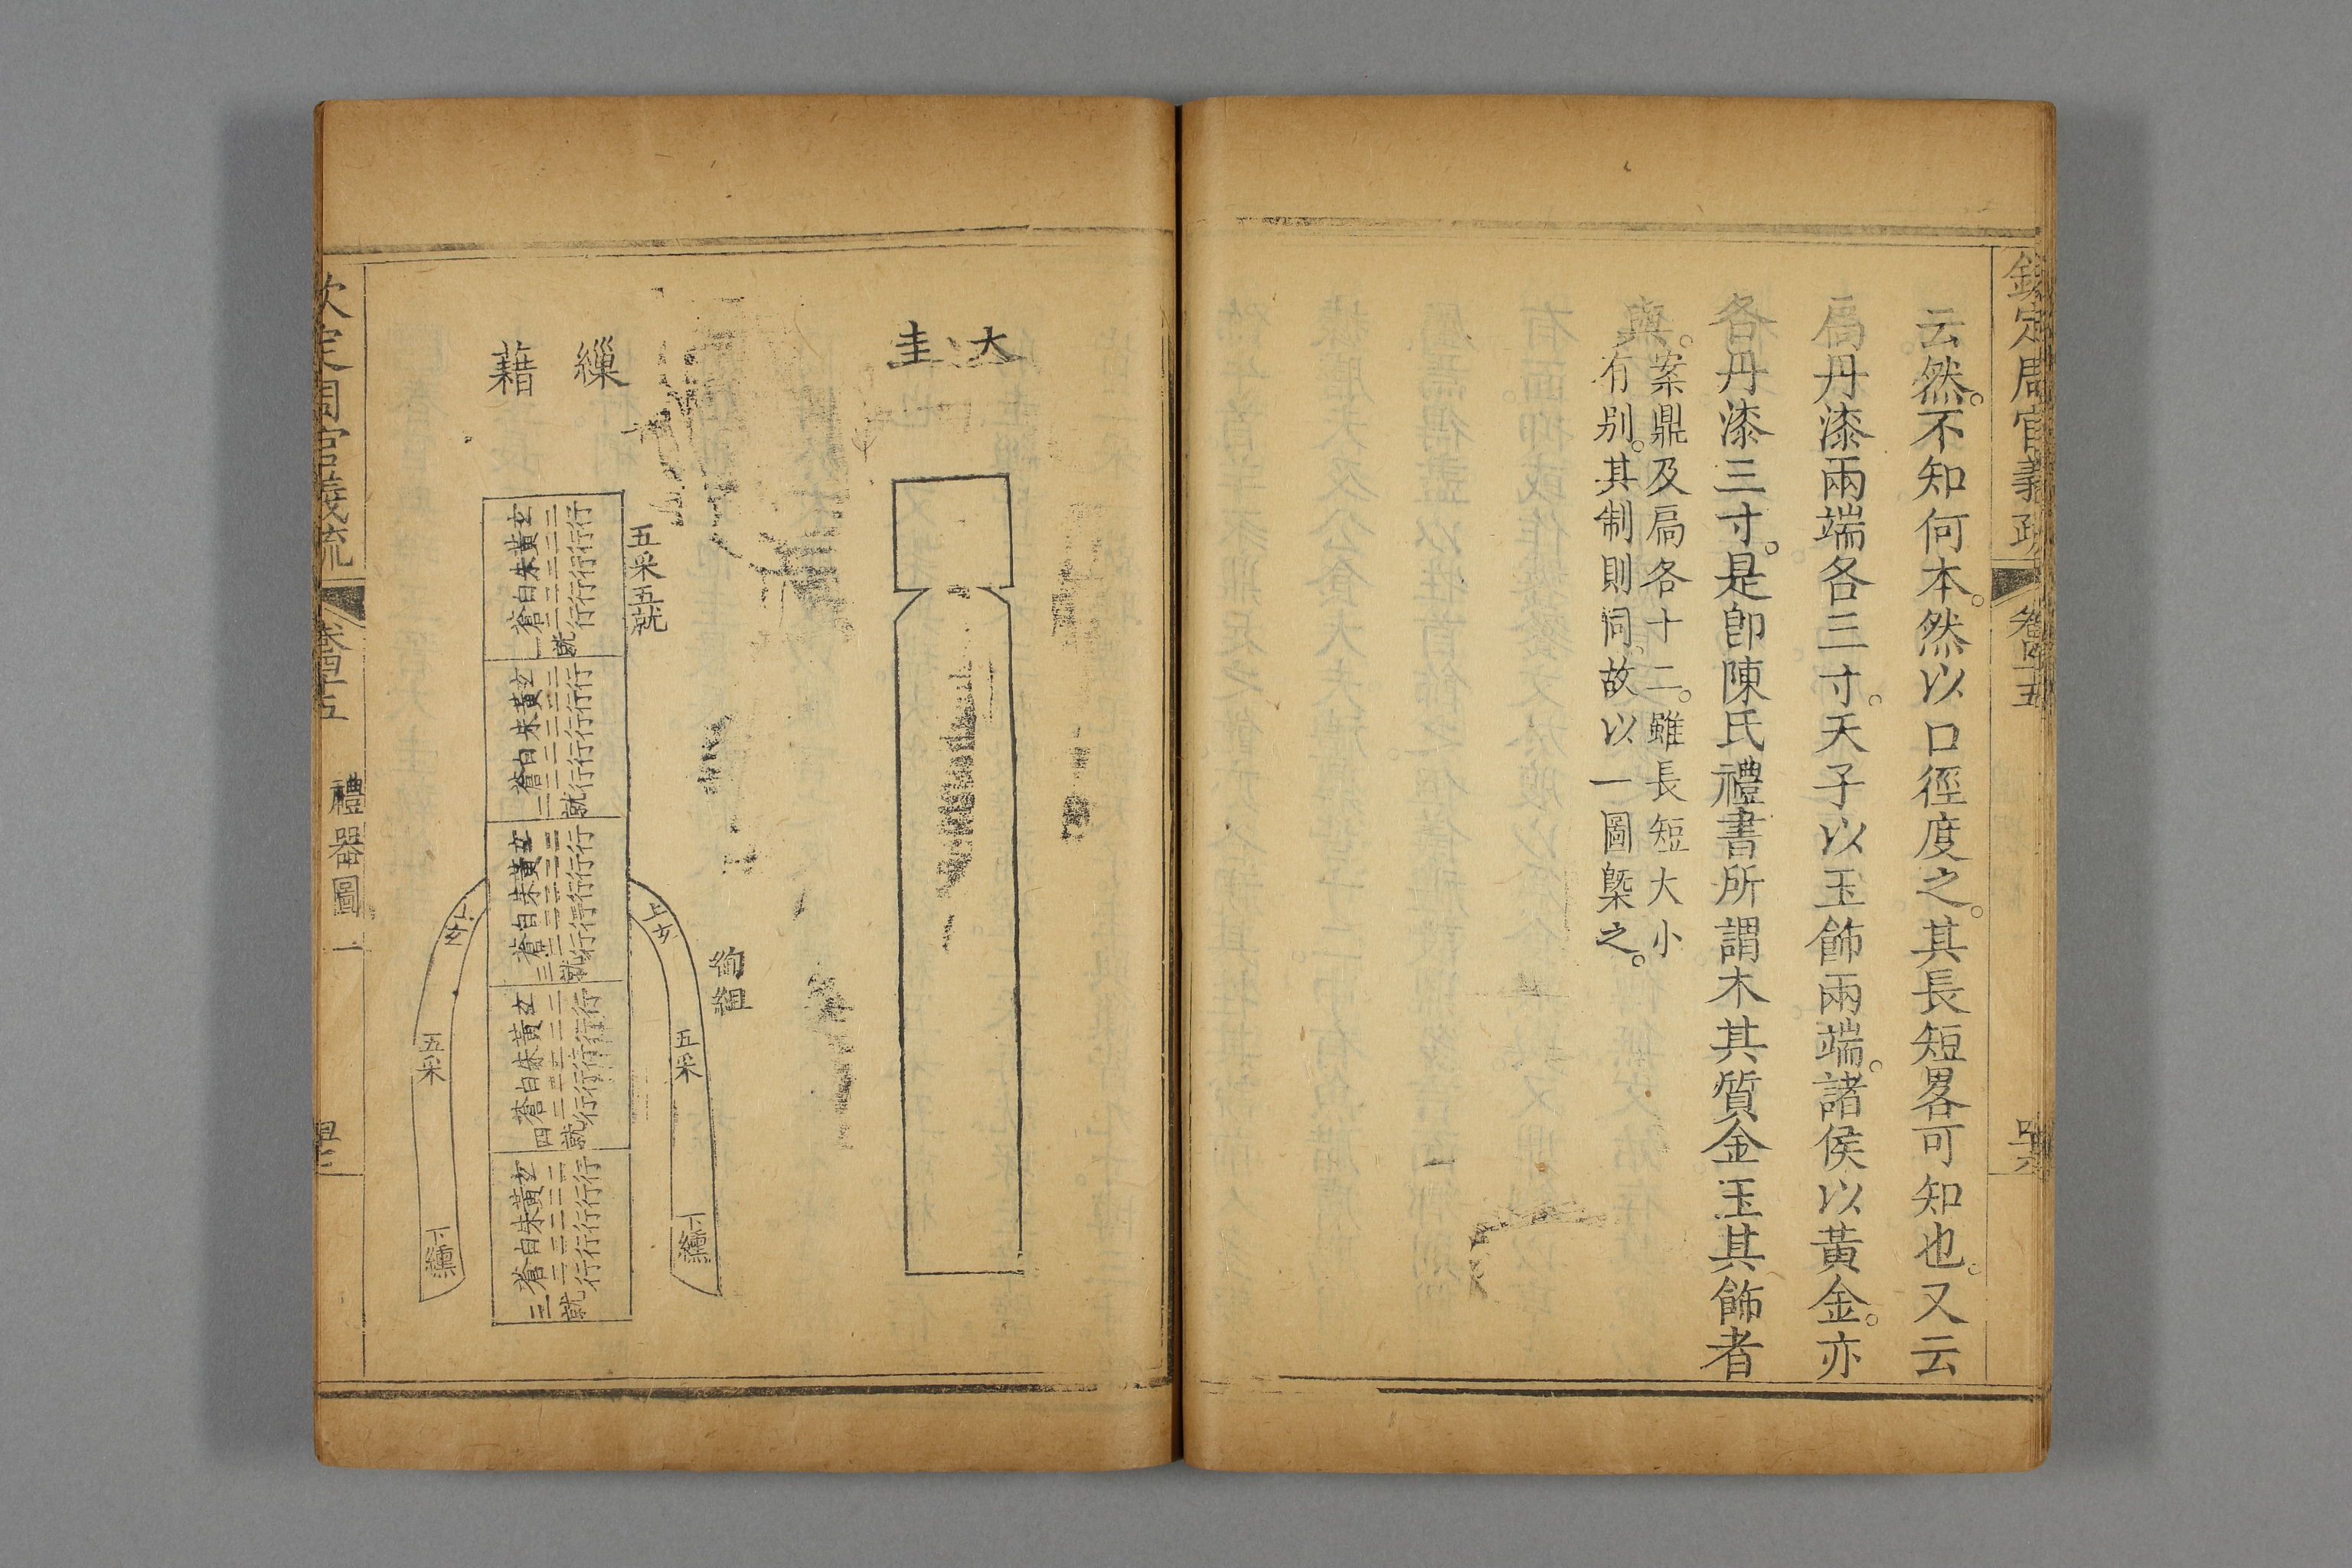 欽定周官義疏
卷四十五
云然不知何本然以口徑度之其長短畧可知也又云
扃丹漆兩端各三寸天子以玉飾兩端諸侯以黃金亦
各丹漆三寸是卽陳氏禮書所謂木其質金玉其飾者
與案鼎及扃各十二雖長短大小
有别其制則同故以一圖槩之
大圭
繅藉
五采五就
絢組
玄黃朱白蒼一
二行二行二行二行二行一就
玄黃朱白蒼二
二行二行二行二行二行二就
玄黃朱白蒼三
二行二行二行二行二行三就
玄黃朱白蒼四
二行二行二行二行二行四就
玄黃朱白蒼三
二行二行二行二行二行就
上玄
五采
下纁
上玄
五采
下纁
欽定周官義疏
卷四十五
禮器圖一